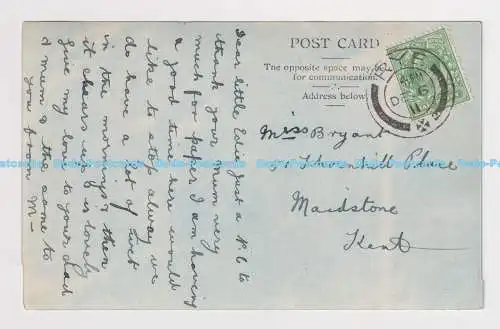 POST CARD
The opposite space may be
for communication.
Address below.
RYE
DE 6
11
Dear little Edie just a P.C to
thank your mum very
much for paper I am having
a good time here would
like to stop always we
do have a lot of
in the mornings & then
it clears up is lovely
give my love to your dad
& mum & the same to
you from M-
Miss Bryant
Place
Maidstone
Kent